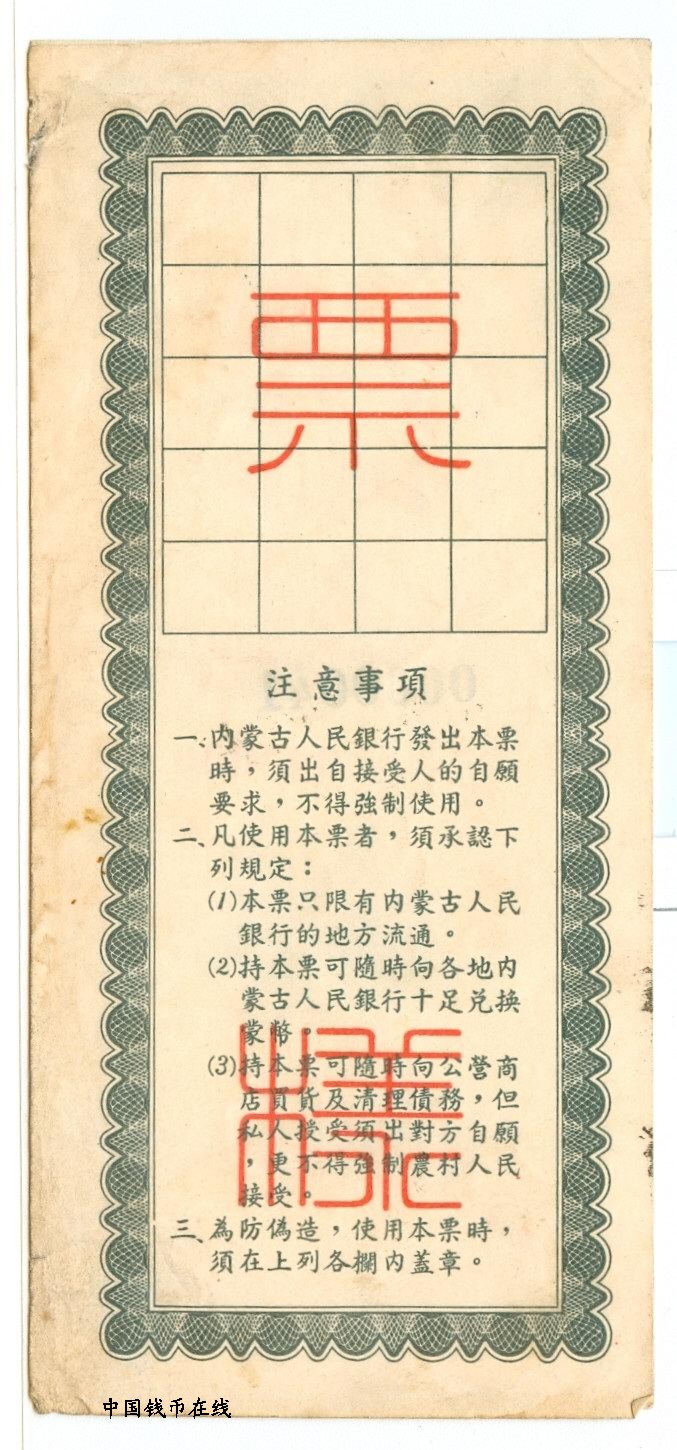 票
注意事項
一、內蒙古人民銀行發出本票
時，須出自接受人的自願
要求，不得強制使用。
二、凡使用本票者，須承認下
列規定：
(1)本票只限有內蒙古人民
銀行的地方流通。
(2)持本票可隨時向各地內
蒙古人民銀行十足兌換
蒙幣。
(3)持本票可隨時向公營商
店買貨及清理債務，但
私人授受須出對方自願
，更不得強制農村人民
接受。
樣
三、為防偽造，使用本票時，
須在上列各欄內蓋章。
中国钱币在线